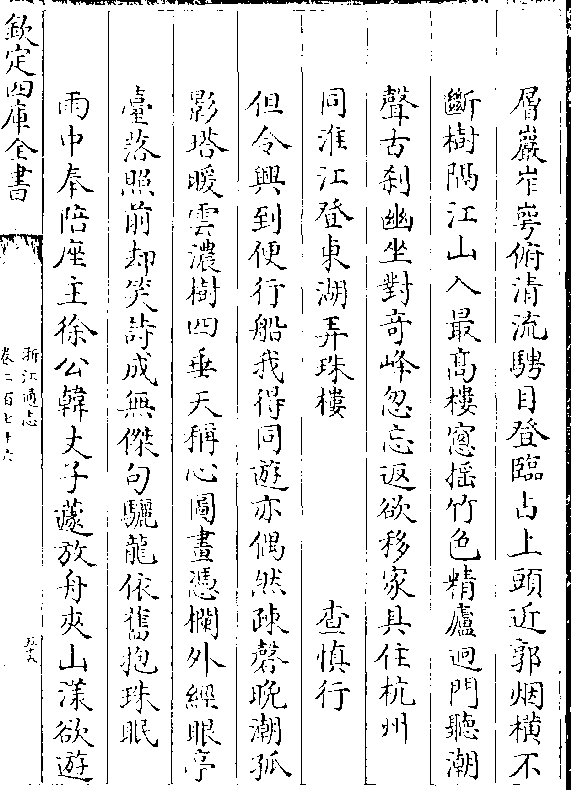 層巖岝崿俯清流騁目登臨占上頭近郭烟橫不
斷樹隔江山入最高樓窻摇竹色精廬迥門聽潮
聲古刹幽坐對奇峰忽忘返欲移家具住杭州
同淮江登東湖弄珠樓 查慎行
但令興到便行船我得同遊亦偶然疎磬晚潮孤
影塔暖雲濃樹四垂天稱心圖畫憑欄外經眼亭
臺落照前却笑詩成無傑句驪龍依舊抱珠眠
雨中奉陪座主徐公韓大子蘧放舟夾山漾欲遊
欽定四庫全書
浙江通志
卷二百七十六
五十九